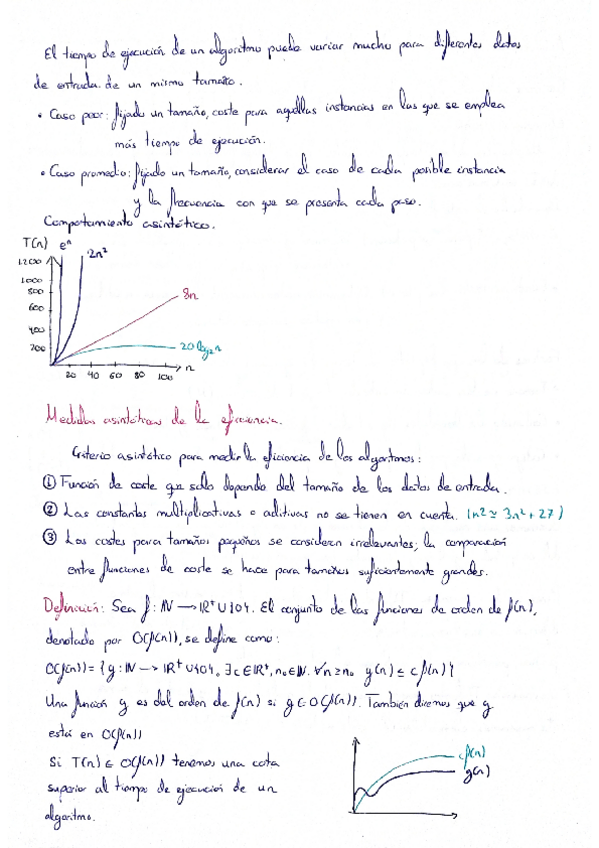 El tiempo de ejecución de un algoritmo puede variar mucho para diferentes datos
de entrada de un mismo tamaño.
• Caso peor: fijado un tamaño, coste para aquellas instancias en las que se emplea
más tiempo de ejecución.
• Caso promedio: fijado un tamaño, considerar el caso de cada posible instancia
y la frecuencia con que se presenta cada paso.
Comportamiento asintótico.
T(n) eⁿ 2n²
1200
1000
800
600
400
200
8n
20 log₂ n
20 40 60 80 100 n
Medidas asintóticas de la eficiencia.
Criterio asintótico para medir la eficiencia de los algoritmos:
① Función de coste que solo dependa del tamaño de los datos de entrada.
② Las constantes multiplicativas o aditivas no se tienen en cuenta. (n2 ≃ 3n² + 27)
③ Los costes para tamaños pequeños se consideran irrelevantes; la comparación
entre funciones de coste se hace para tamaños suficientemente grandes.
Definición: Sea f: ℕ → ℝ⁺ ∪ {0}. El conjunto de las funciones de orden de f(n),
denotado por O(f(n)), se define como:
O(f(n)) = {g: ℕ → ℝ⁺ ∪ {0}. ∃c ∈ ℝ⁺, n₀ ∈ ℕ. ∀n ≥ n₀ g(n) ≤ c f(n)}
Una función g es del orden de f(n) si g ∈ O(f(n)). También diremos que g
está en O(f(n))
Si T(n) ∈ O(f(n)) tenemos una cota
superior al tiempo de ejecución de un
algoritmo.
cf(n)
g(n)